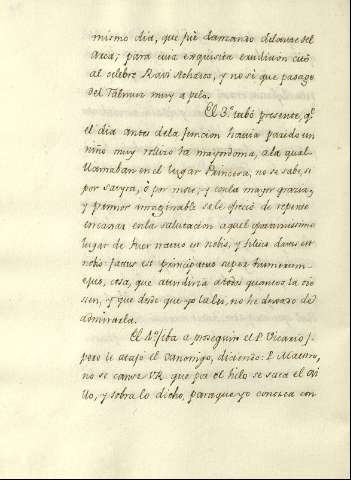 mismo dia, que fuè damzando delante del
Arca; para cuia exquisita erudicion citò
al celebre Ravi Acheros, y no sè que pasage
del Talmur muy a pelo.
El 3.º tubò presente, q.e
el dia antes dela funcion havia parido un
niño muy rollizo la mayrdoma, ala qual
llamaban en el lugar Princesa, no se sabe, si
por satyra, ò por mote; y conla mayor gracia,
y primor imaginable sele ofreciò de repente
encaxar enla salutacion aquel oportunissimo
lugar de Puer natus est nobis, y filius datus est
nobis: factus est principatus super humerum
ejus, cosa, que aturdiria atodos quantos la oie
sen, y que desde que yo la lei, no he dexado de
admirarla.
El 4.º iba a proseguir el P. Vicario,
pero le atajò el Canonigo, diciendo: P. Maestro,
no se canse VR. que por el hilo se saca el ovi
llo, y sobra lo dicho, paraque yo conozca con